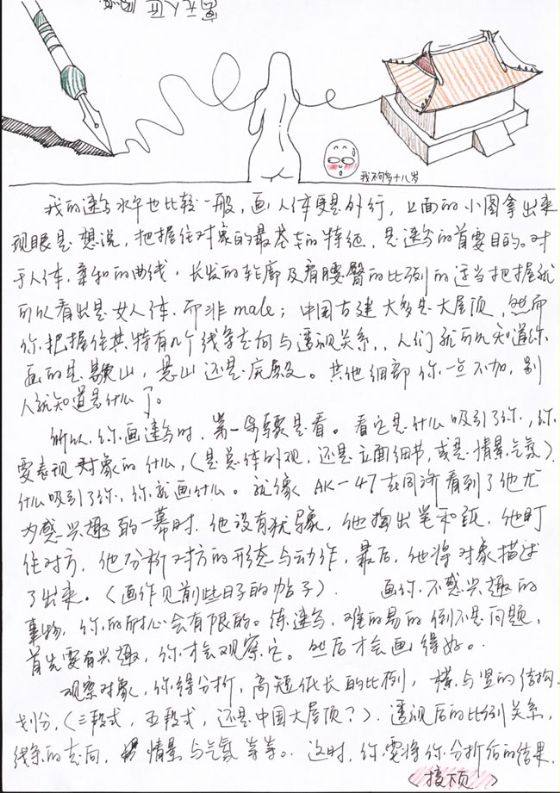 我不到十八岁
我的速写水平也比较一般，画人体更是外行，上面的小图拿出来
现眼是想说，把握住对象的最基本的特征，是速写的首要目的。对
于人体，柔和的曲线，长发的轮廓及肩腰臀的比例的适当把握就
可以看出是女人体，而非male；中国古建大多是大屋顶，然而
你把握住其特有几个线条走向与透视关系，人们就可以知道你
画的是歇山，悬山还是庑殿。其他细部你一点不加，别
人就知道是什么了。
所以，你画速写时，第一步骤是看。看它是什么吸引了你，你
要表现对象的什么，（是总体的观，还是立面细节，或是情景气氛）
什么吸引了你，你就画什么。就像AK-47在同济看到了他尤
为感兴趣的一幕时，他没有犹豫，他掏出笔和纸，他盯
住对方，他分析对方的形态与动作，最后，他将对象描述
了出来。（画作见前些日子的帖子）. 画你不感兴趣的
事物，你的耐心会有限的。练速写，难的易的倒不是问题，
首先要有兴趣，你才会观察它。然后才会画得好。
观察对象，你得分析，高短低长的比例，横与竖的结构
划分，（三段式，五段式，还是中国大屋顶？），透视后的比例关系，
线条的走向，情景与气氛等等。这时，你要将你分析后的结果，
<接下页>